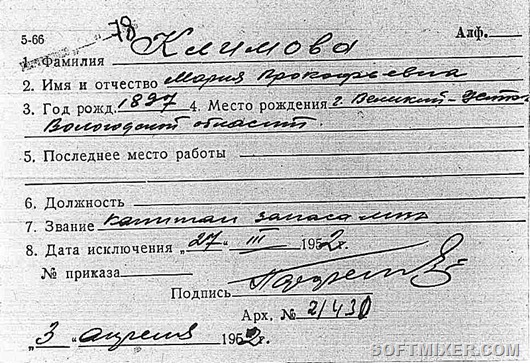 5-66 78 Алф.
1. Фамилия Климова
2. Имя и отчество Мария Прокофьевна
3. Год рожд. 1897 4. Место рождения г. Великий-Устюг
Вологодской области.
5. Последнее место работы
6. Должность
7. Звание капитан запаса
8. Дата исключения „27" III 1952г.
№ приказа
Подпись
Арх. № 21430
„3" апреля 1952г.
SOFTMIXER.COM